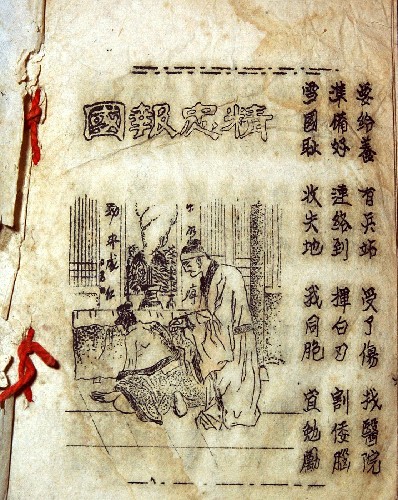 要給養 有兵站 受了傷 找醫院
準備好 連絡到 揮白刃 割倭腦
雪國耻 收失地 我同胞 宜勉勵
精忠報國